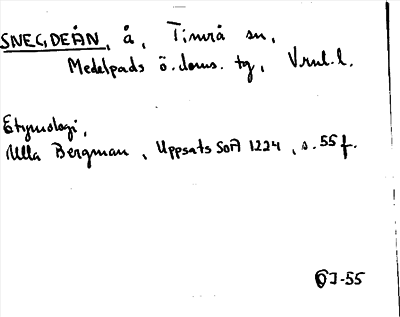 SNEGDEÅN, å, Timrå sn,
Medelpads ö. doms. tg, V.nrl. l.
Etymologi,
Ulla Bergman, Uppsats SoA 1224, s. 55 f.
OJ-55